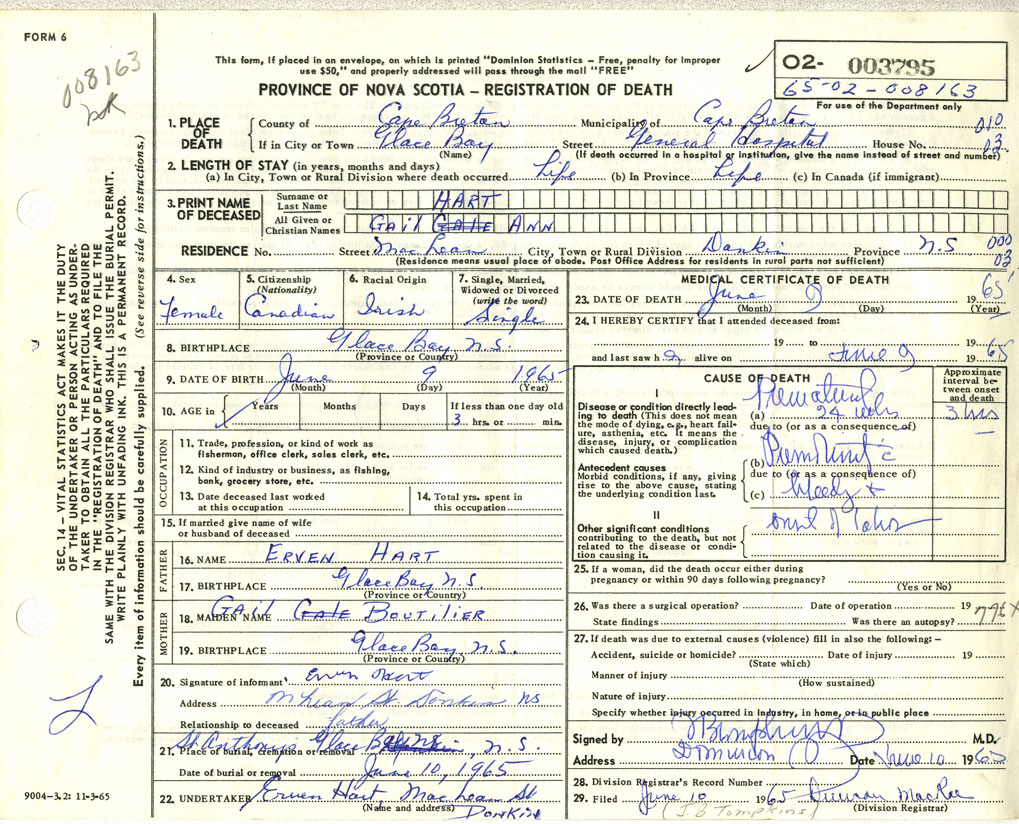 FORM 6
008163
This form, if placed in an envelope, on which is printed "Dominion Statistics – Free, penalty for improper
use $50," and properly addressed will pass through the mail "FREE"
PROVINCE OF NOVA SCOTIA – REGISTRATION OF DEATH
02- 003795
65-02-008163
For use of the Department only
1. PLACE OF DEATH
County of Cape Breton Municipality of Cape Breton 010
If in City or Town Glace Bay Street General Hospital House No. 03
(Name) (If death occurred in a hospital or institution, give the name instead of street and number)
2. LENGTH OF STAY (in years, months and days)
(a) In City, Town or Rural Division where death occurred Life (b) In Province Life (c) In Canada (if immigrant)
3. PRINT NAME OF DECEASED
Surname or Last Name HART
All Given or Christian Names GAIL GALE ANN
RESIDENCE No. Street MacLean City, Town or Rural Division Donkin Province N.S 000
03
(Residence means usual place of abode. Post Office Address for residents in rural parts not sufficient)
4. Sex
Female
5. Citizenship
(Nationality)
Canadian
6. Racial Origin
Irish
7. Single, Married,
Widowed or Divorced
(write the word)
Single
8. BIRTHPLACE Glace Bay N.S.
(Province or Country)
9. DATE OF BIRTH June 9 1965
(Month) (Day) (Year)
10. AGE in Years Months Days If less than one day old
3 hrs. or min.
OCCUPATION
11. Trade, profession, or kind of work as
fisherman, office clerk, sales clerk, etc.
12. Kind of industry or business, as fishing,
bank, grocery store, etc.
13. Date deceased last worked
at this occupation
14. Total yrs. spent in
this occupation
15. If married give name of wife
or husband of deceased
FATHER
16. NAME ERVEN HART
17. BIRTHPLACE Glace Bay N.S.
(Province or Country)
MOTHER
18. MAIDEN NAME GAIL GALE BOUTILIER
19. BIRTHPLACE Glace Bay N.S.
(Province or Country)
20. Signature of informant Erven Hart
Address St. Donkin NS
Relationship to deceased father
21. Place of burial, cremation or removal St Anthony's Glace Bay N.S.
Date of burial or removal June 10, 1965
22. UNDERTAKER Erven Hart, MacLean St
(Name and address) DONKIN
MEDICAL CERTIFICATE OF DEATH
23. DATE OF DEATH June 9 1965
(Month) (Day) (Year)
24. I HEREBY CERTIFY that I attended deceased from:
19 to 19
and last saw h alive on June 9 1965
CAUSE OF DEATH
Approximate
interval be-
tween onset
and death
I
Disease or condition directly lead-
ing to death (This does not
mean the mode of dying, e.g., heart fail-
ure, asthenia, etc. It means the
disease, injury, or complication
which caused death.)
(a) Premature
24 wks 3 hrs
due to (or as a consequence of)
Antecedent causes
Morbid conditions, if any, giving
rise to the above cause, stating
the underlying condition last.
(b)
due to (or as a consequence of)
(c)
II
Other significant conditions
contributing to the death, but not
related to the disease or condi-
tion causing it.
onset of labor
25. If a woman, did the death occur either during
pregnancy or within 90 days following pregnancy?
(Yes or No)
26. Was there a surgical operation? Date of operation 19
State findings Was there an autopsy? 776X
27. If death was due to external causes (violence) fill in also the following: –
Accident, suicide or homicide? Date of injury 19
(State which)
Manner of injury
(How sustained)
Nature of injury
Specify whether injury occurred in industry, in home, or in public place
Signed by M.D.
Address Dominion Date June 10 1965
28. Division Registrar's Record Number
29. Filed June 10 1965 Duncan MacRae
(J.B Tompkins) (Division Registrar)
SEC. 14 – VITAL STATISTICS ACT MAKES IT THE DUTY
OF THE UNDERTAKER OR PERSON ACTING AS UNDER-
TAKER TO OBTAIN ALL THE PARTICULARS REQUIRED
IN THE "REGISTRATION OF DEATH" AND TO FILE THE
SAME WITH THE DIVISION REGISTRAR WHO SHALL ISSUE THE BURIAL PERMIT.
WRITE PLAINLY WITH UNFADING INK. THIS IS A PERMANENT RECORD.
Every item of information should be carefully supplied. (See reverse side for instructions.)
9004-3.2: 11-3-65